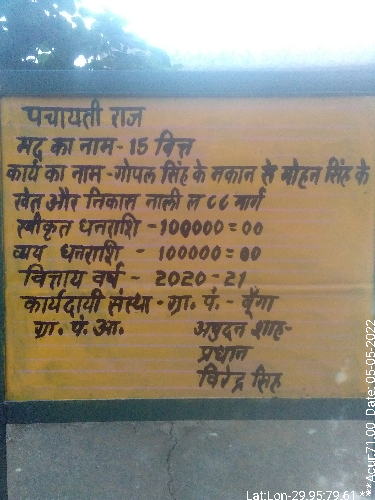 पचायती राज
मद का नाम - 15 वित्त
कार्य का नाम - गोपल सिंह के मकान से मोहन सिंह के
खेत और निकास नाली ल cc मार्ग
स्वीकृत धनराशि - 100000=00
व्यय धनराशि - 100000=00
वित्ताय वर्ष - 2020-21
कार्यदायी संस्था - ग्रा. पं. - बूँगा
ग्रा. पं. अ. अषुदन शाह-
प्रधान
विरेन्द्र सिह
Lat:Lon-29.95:79.61 ***Acur:71.00 Date: 05-05-2022